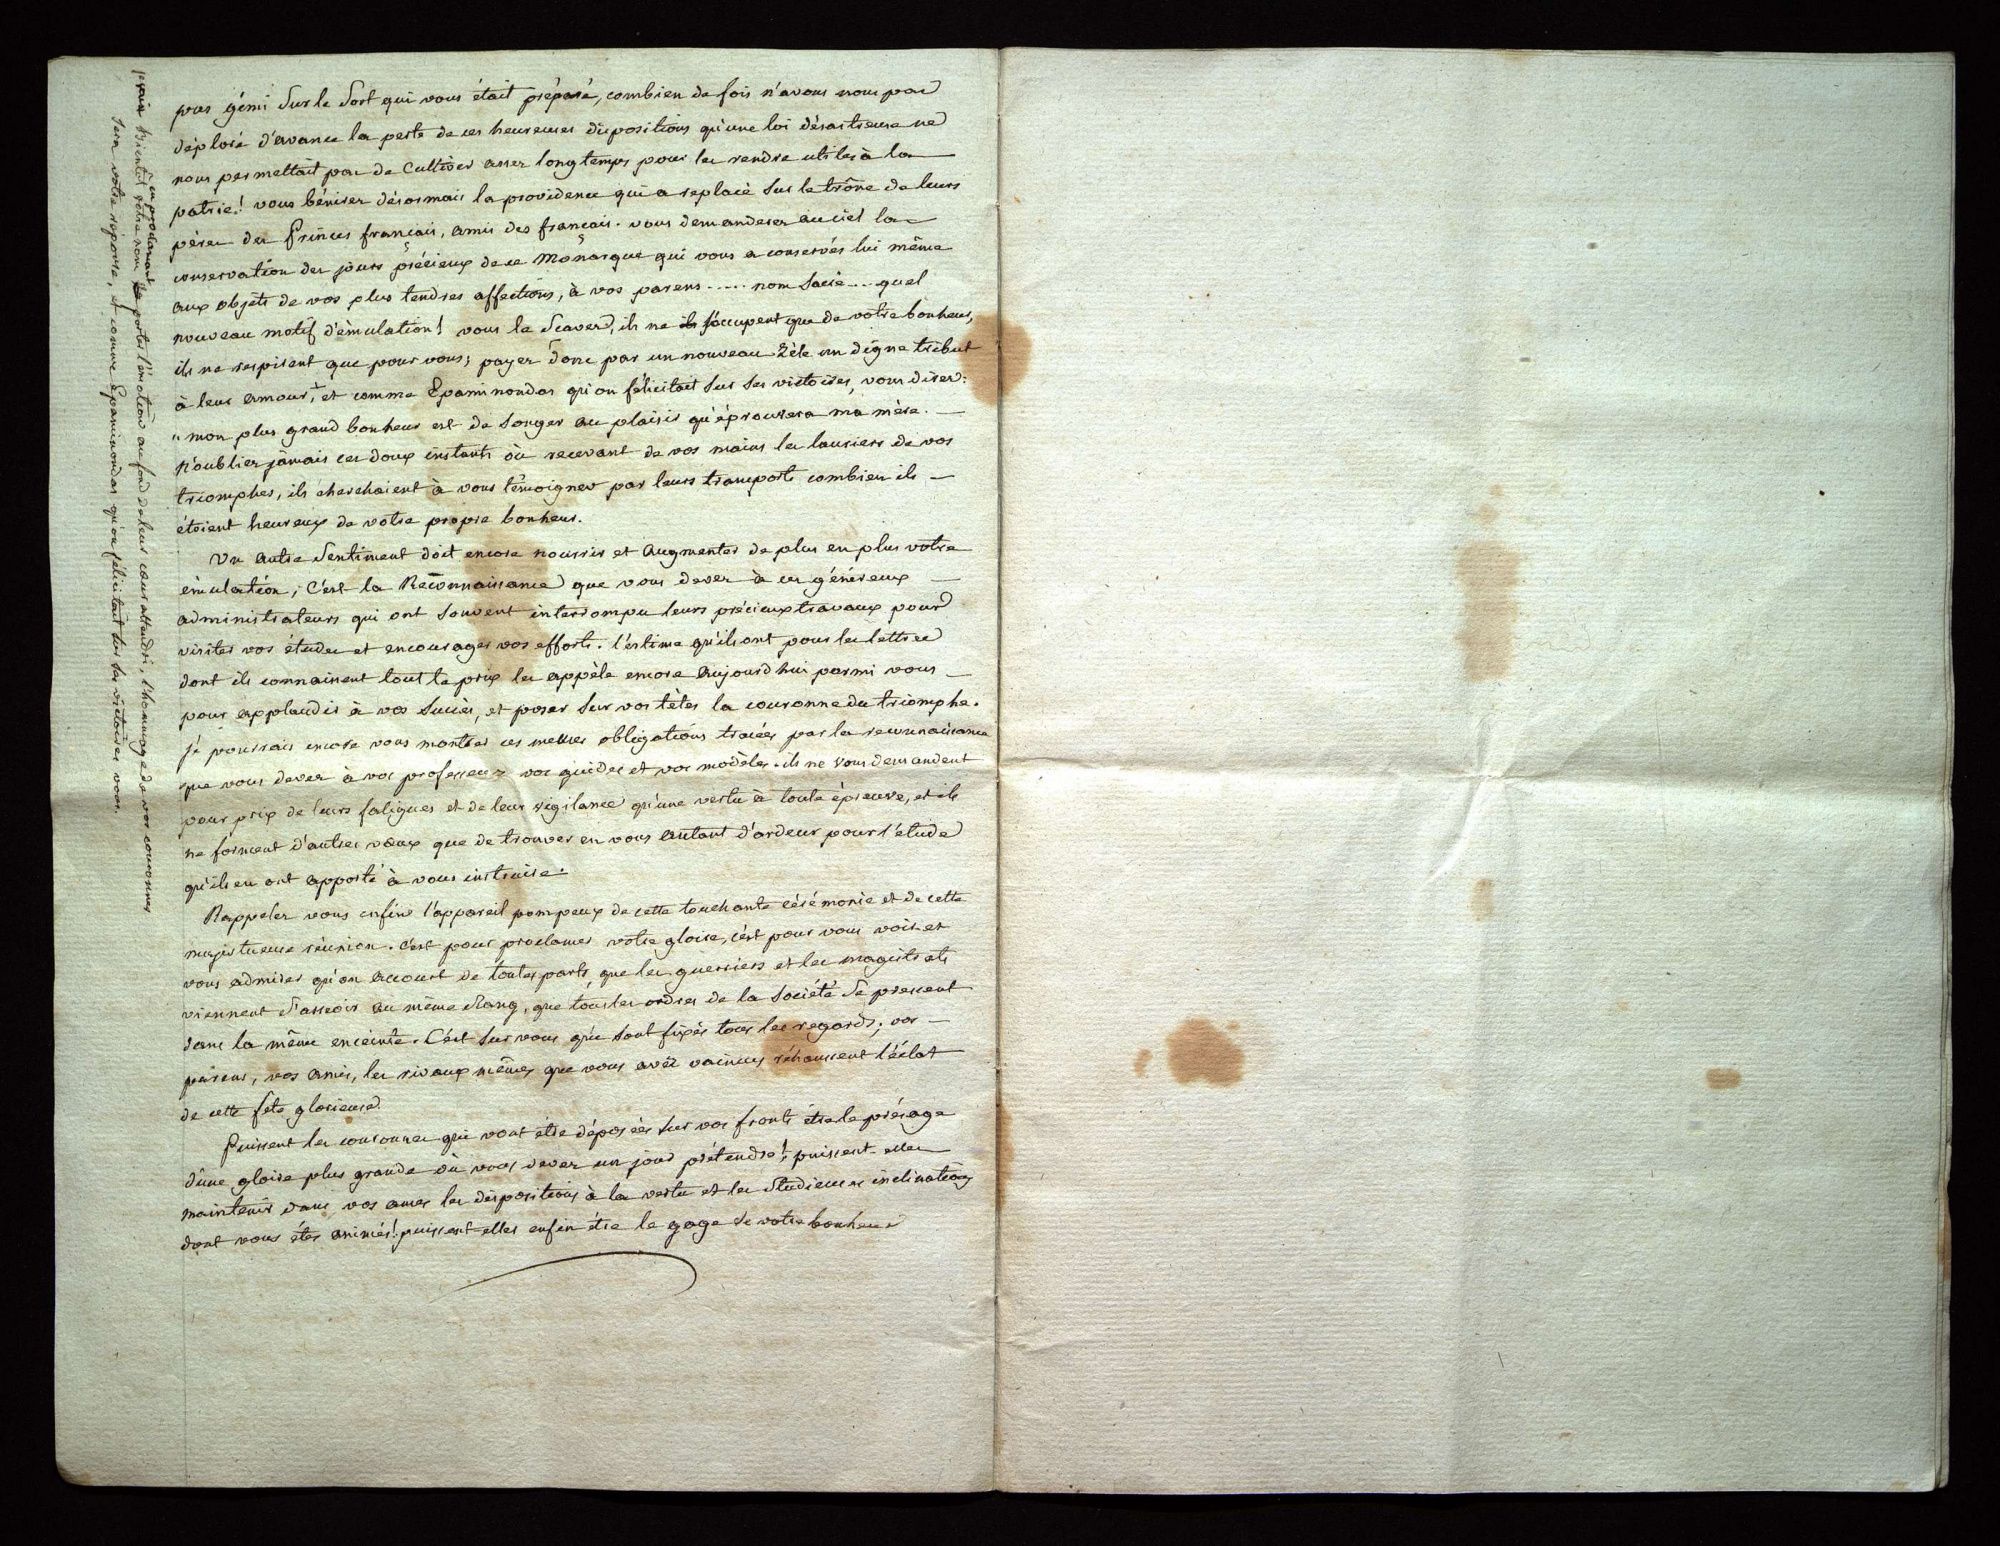 pas gémi sur le sort qui vous était préparé, combien de fois n'avons nous pas
déploré d'avance la perte de ces heureuses dispositions qu'une loi désastreuse ne
nous permettait pas de cultiver assez longtemps pour les rendre utiles à la
patrie! vous bénirez désormais la providence qui a replacé sur le trône de leurs
pères des Princes français, amis des français. vous demanderez au ciel la
conservation des jours précieux de ce Monarque qui vous a conservés lui même
aux objets de vos plus tendres affections, à vos parens ..... nom sacré ... quel
nouveau motif d'émulation! vous le scavez, ils ne s'occupent que de votre bonheur,
ils ne respirent que pour vous; payez donc par un nouveau zèle un digne tribut
à leur amour, et comme Epaminondas qu'on félicitait sur ses victoires, vous direz:
"mon plus grand bonheur est de songer au plaisir qu'éprouvera ma mère. —
n'oubliez jamais ces doux instants où recevant de vos mains les lauriers de vos
triomphes, ils cherchaient à vous témoigner par leurs transports combien ils —
étoient heureux de votre propre bonheur.
Un autre sentiment doit encore nourrir et augmenter de plus en plus votre
émulation, c'est la Reconnaissance que vous devez à ces généreux —
administrateurs qui ont souvent interrompu leurs précieux travaux pour
visiter vos études et encourager vos efforts. l'estime qu'ils ont pour les lettres
dont ils connaissent tout le prix les appèle encore aujourd'hui parmi vous —
pour applaudir à vos succès, et poser sur vos têtes la couronne du triomphe.
je pourrais encore vous montrer ces mêmes obligations tracées par la reconnaissance
que vous devez à vos professeurs vos guides et vos modèles. ils ne vous demandent
pour prix de leurs fatigues et de leur vigilance qu'une vertu à toute épreuve, et ils
ne forment d'autres vœux que de trouver en vous autant d'ardeur pour l'étude
qu'ils en ont apporté à vous instruire.
Rappelez vous enfin l'appareil pompeux de cette touchante cérémonie et de cette
majestueuse réunion. c'est pour proclamer votre gloire, c'est pour vous voir et
vous admirer qu'on accourt de toutes parts, que les guerriers et les magistrats
viennent s'asseoir au même Rang, que tous les ordres de la société se pressent
dans la même enceinte. C'est sur vous que sont fixés tous les regards; vos —
parens, vos amis, les rivaux mêmes que vous avez vaincus réhaussent l'éclat
de cette fete glorieuse.
Puissent les couronnes qui vont être déposées sur vos fronts être le présage
d'une gloire plus grande où vous devez un jour prétendre! puissent-elles
maintenir dans vos ames les dispositions à la vertu et les studieuses inclinations
dont vous êtes animés! puissent-elles enfin être le gage de votre bonheur
bientôt votre nom
en proclamant
portez l'émotion au fond de leur cœur attendri, l'hommage de vos couronnes
sera votre réponse, et comme Epaminondas qu'on félicitait sur ses victoires vous